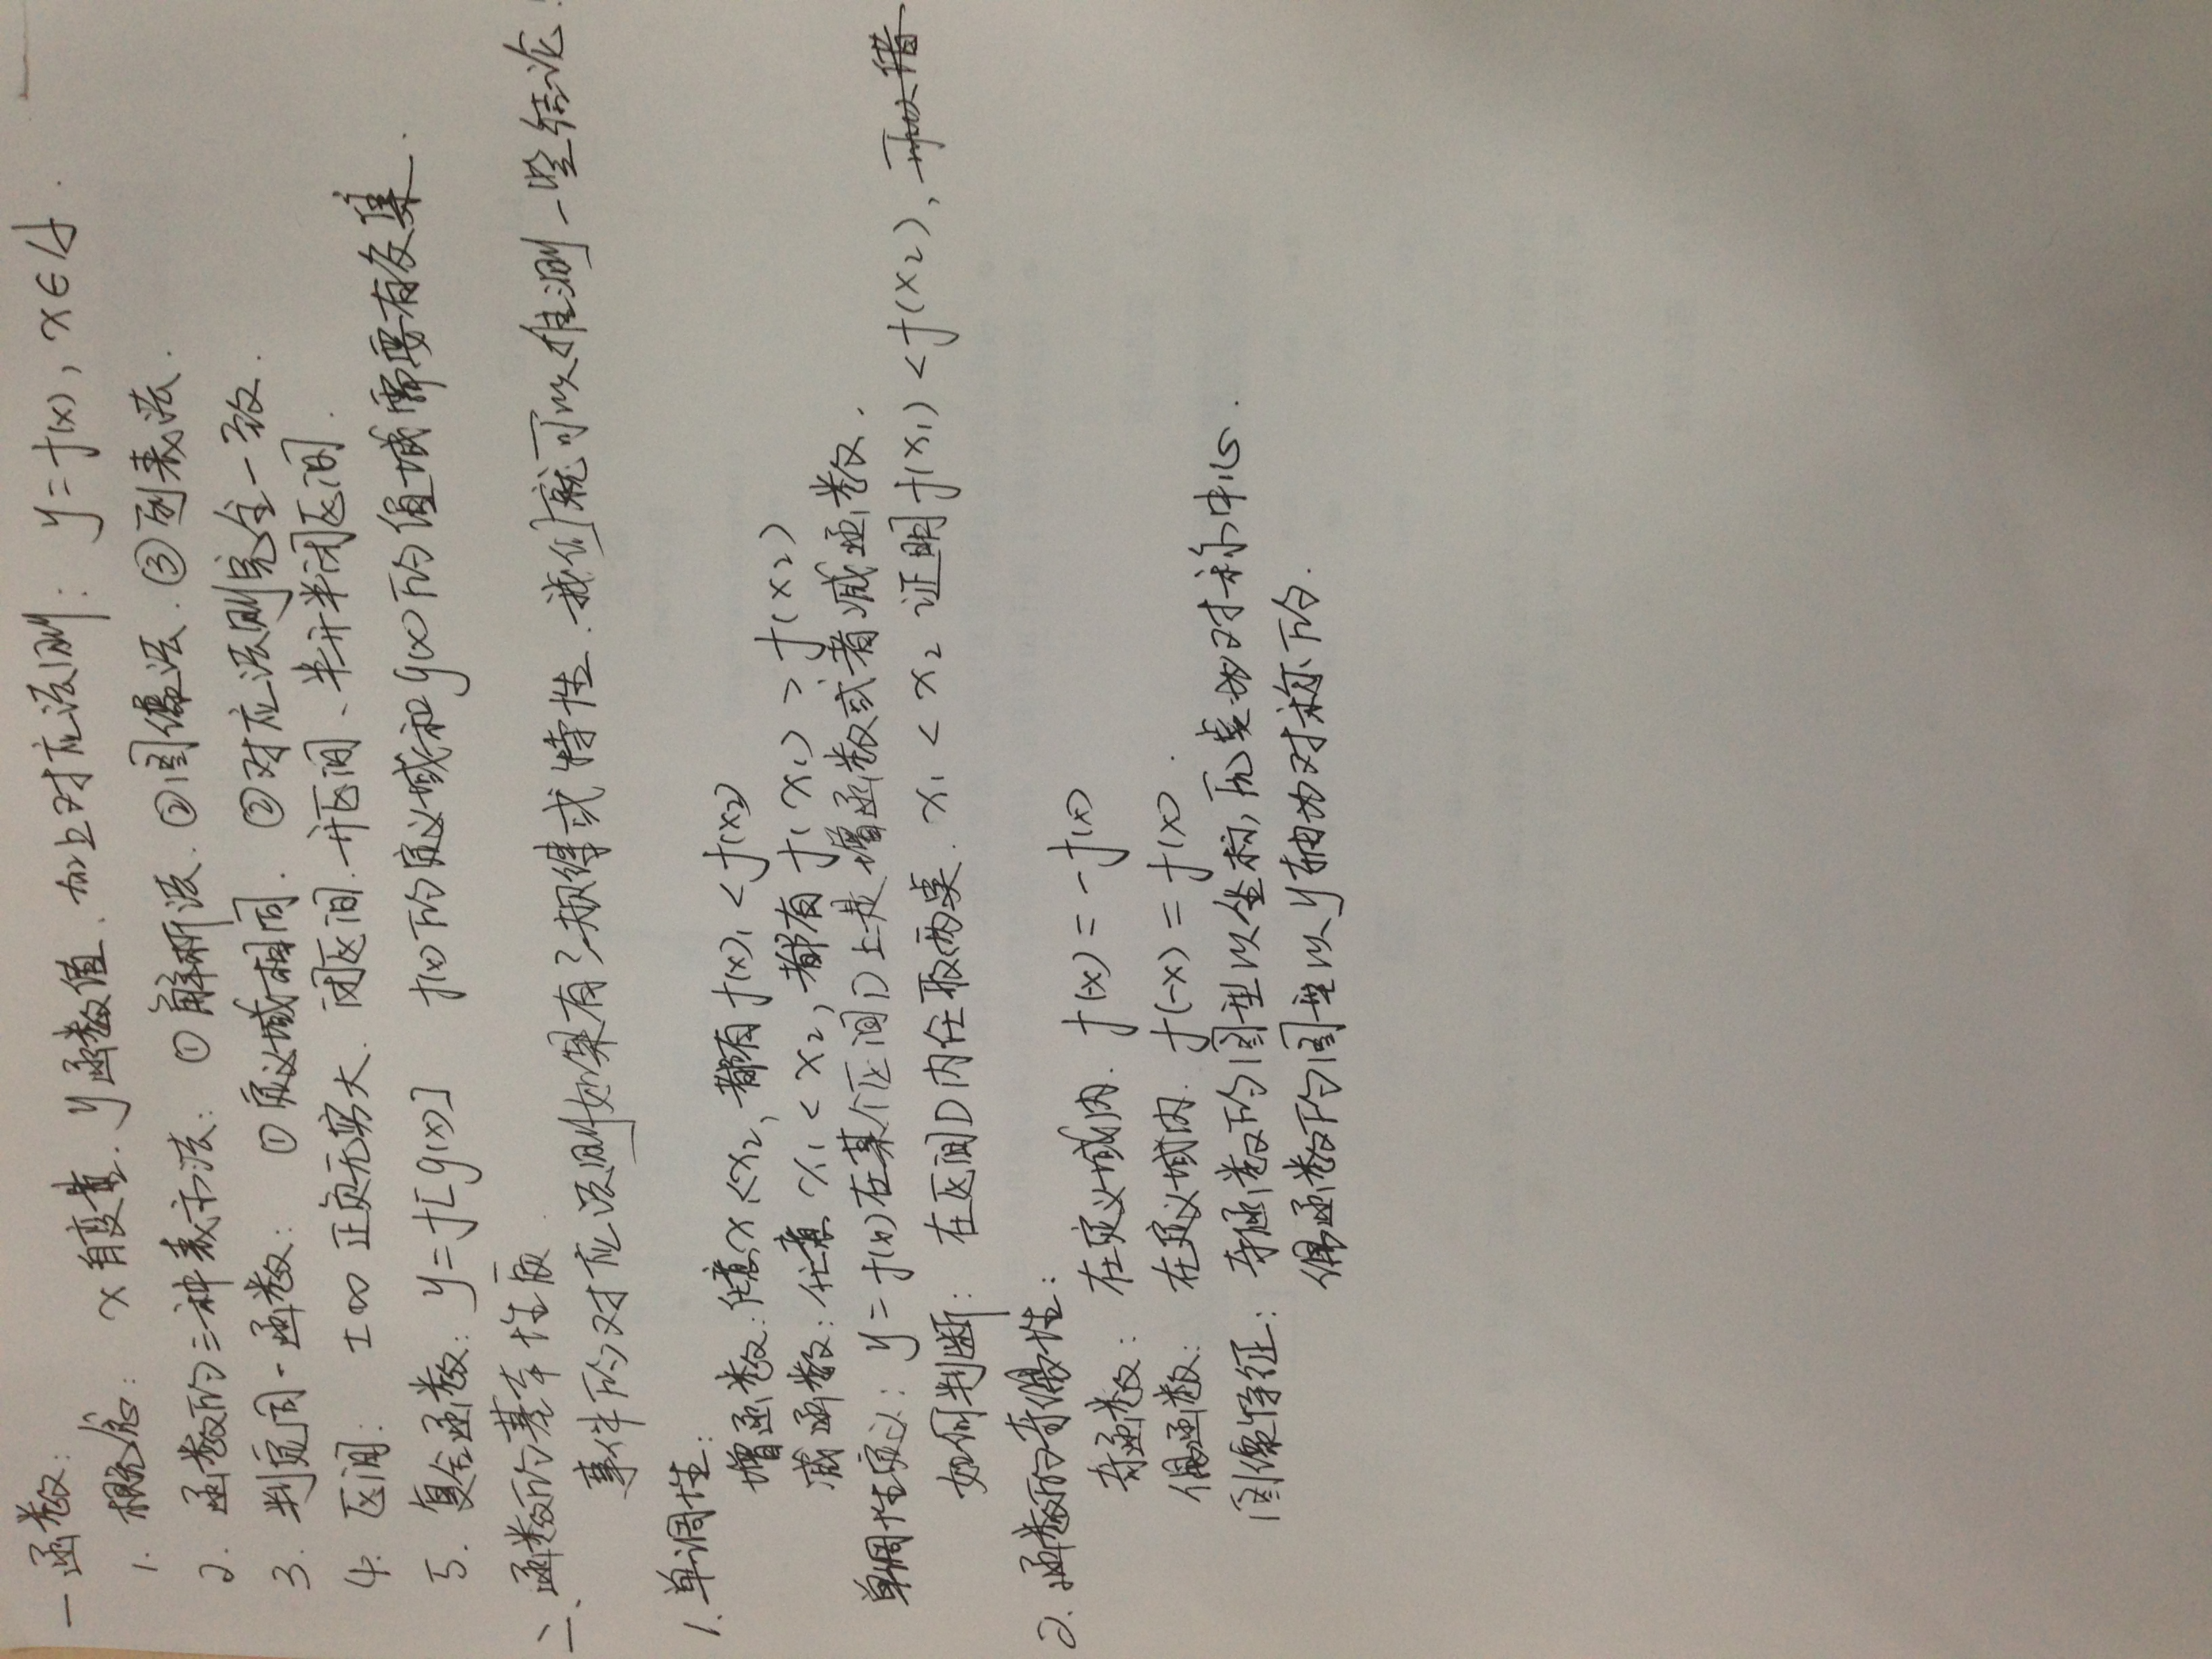 一 函数:
1. 概念: x自变量、y函数值、加上对应法则: y=f(x), x∈A.
2. 函数的三种表示法: ①解析法. ②图像法. ③列表法.
3. 判定同一函数: ①定义域相同. ②对应法则完全一致.
4. 区间: ±∞ 正负无穷大. 闭区间. 开区间、半开半闭区间.
5. 复合函数: y=f[g(x)] f(x)的定义域和g(x)的值域需要有交集.
二、函数的基本性质.
事件的对应法则如果有了规律或特性、我们就可以推测一些结论!
1. 单调性:
增函数: 任意x₁<x₂, 都有f(x)₁<f(x₂)
减函数: 任意 x₁<x₂, 都有 f(x₁)>f(x₂)
单调性定义: y=f(x)在某个区间D上是增函数或者减函数.
如何判断: 在区间D内任取两点. x₁<x₂ 证明f(x₁)<f(x₂), 可以借
2. 函数的奇偶性:
奇函数: 在定义域内. f(-x)=-f(x)
偶函数: 在定义域内. f(-x)=f(x).
图像特征: 奇函数的图型以坐标原点为对称中心.
偶函数的图型以y轴为对称的.